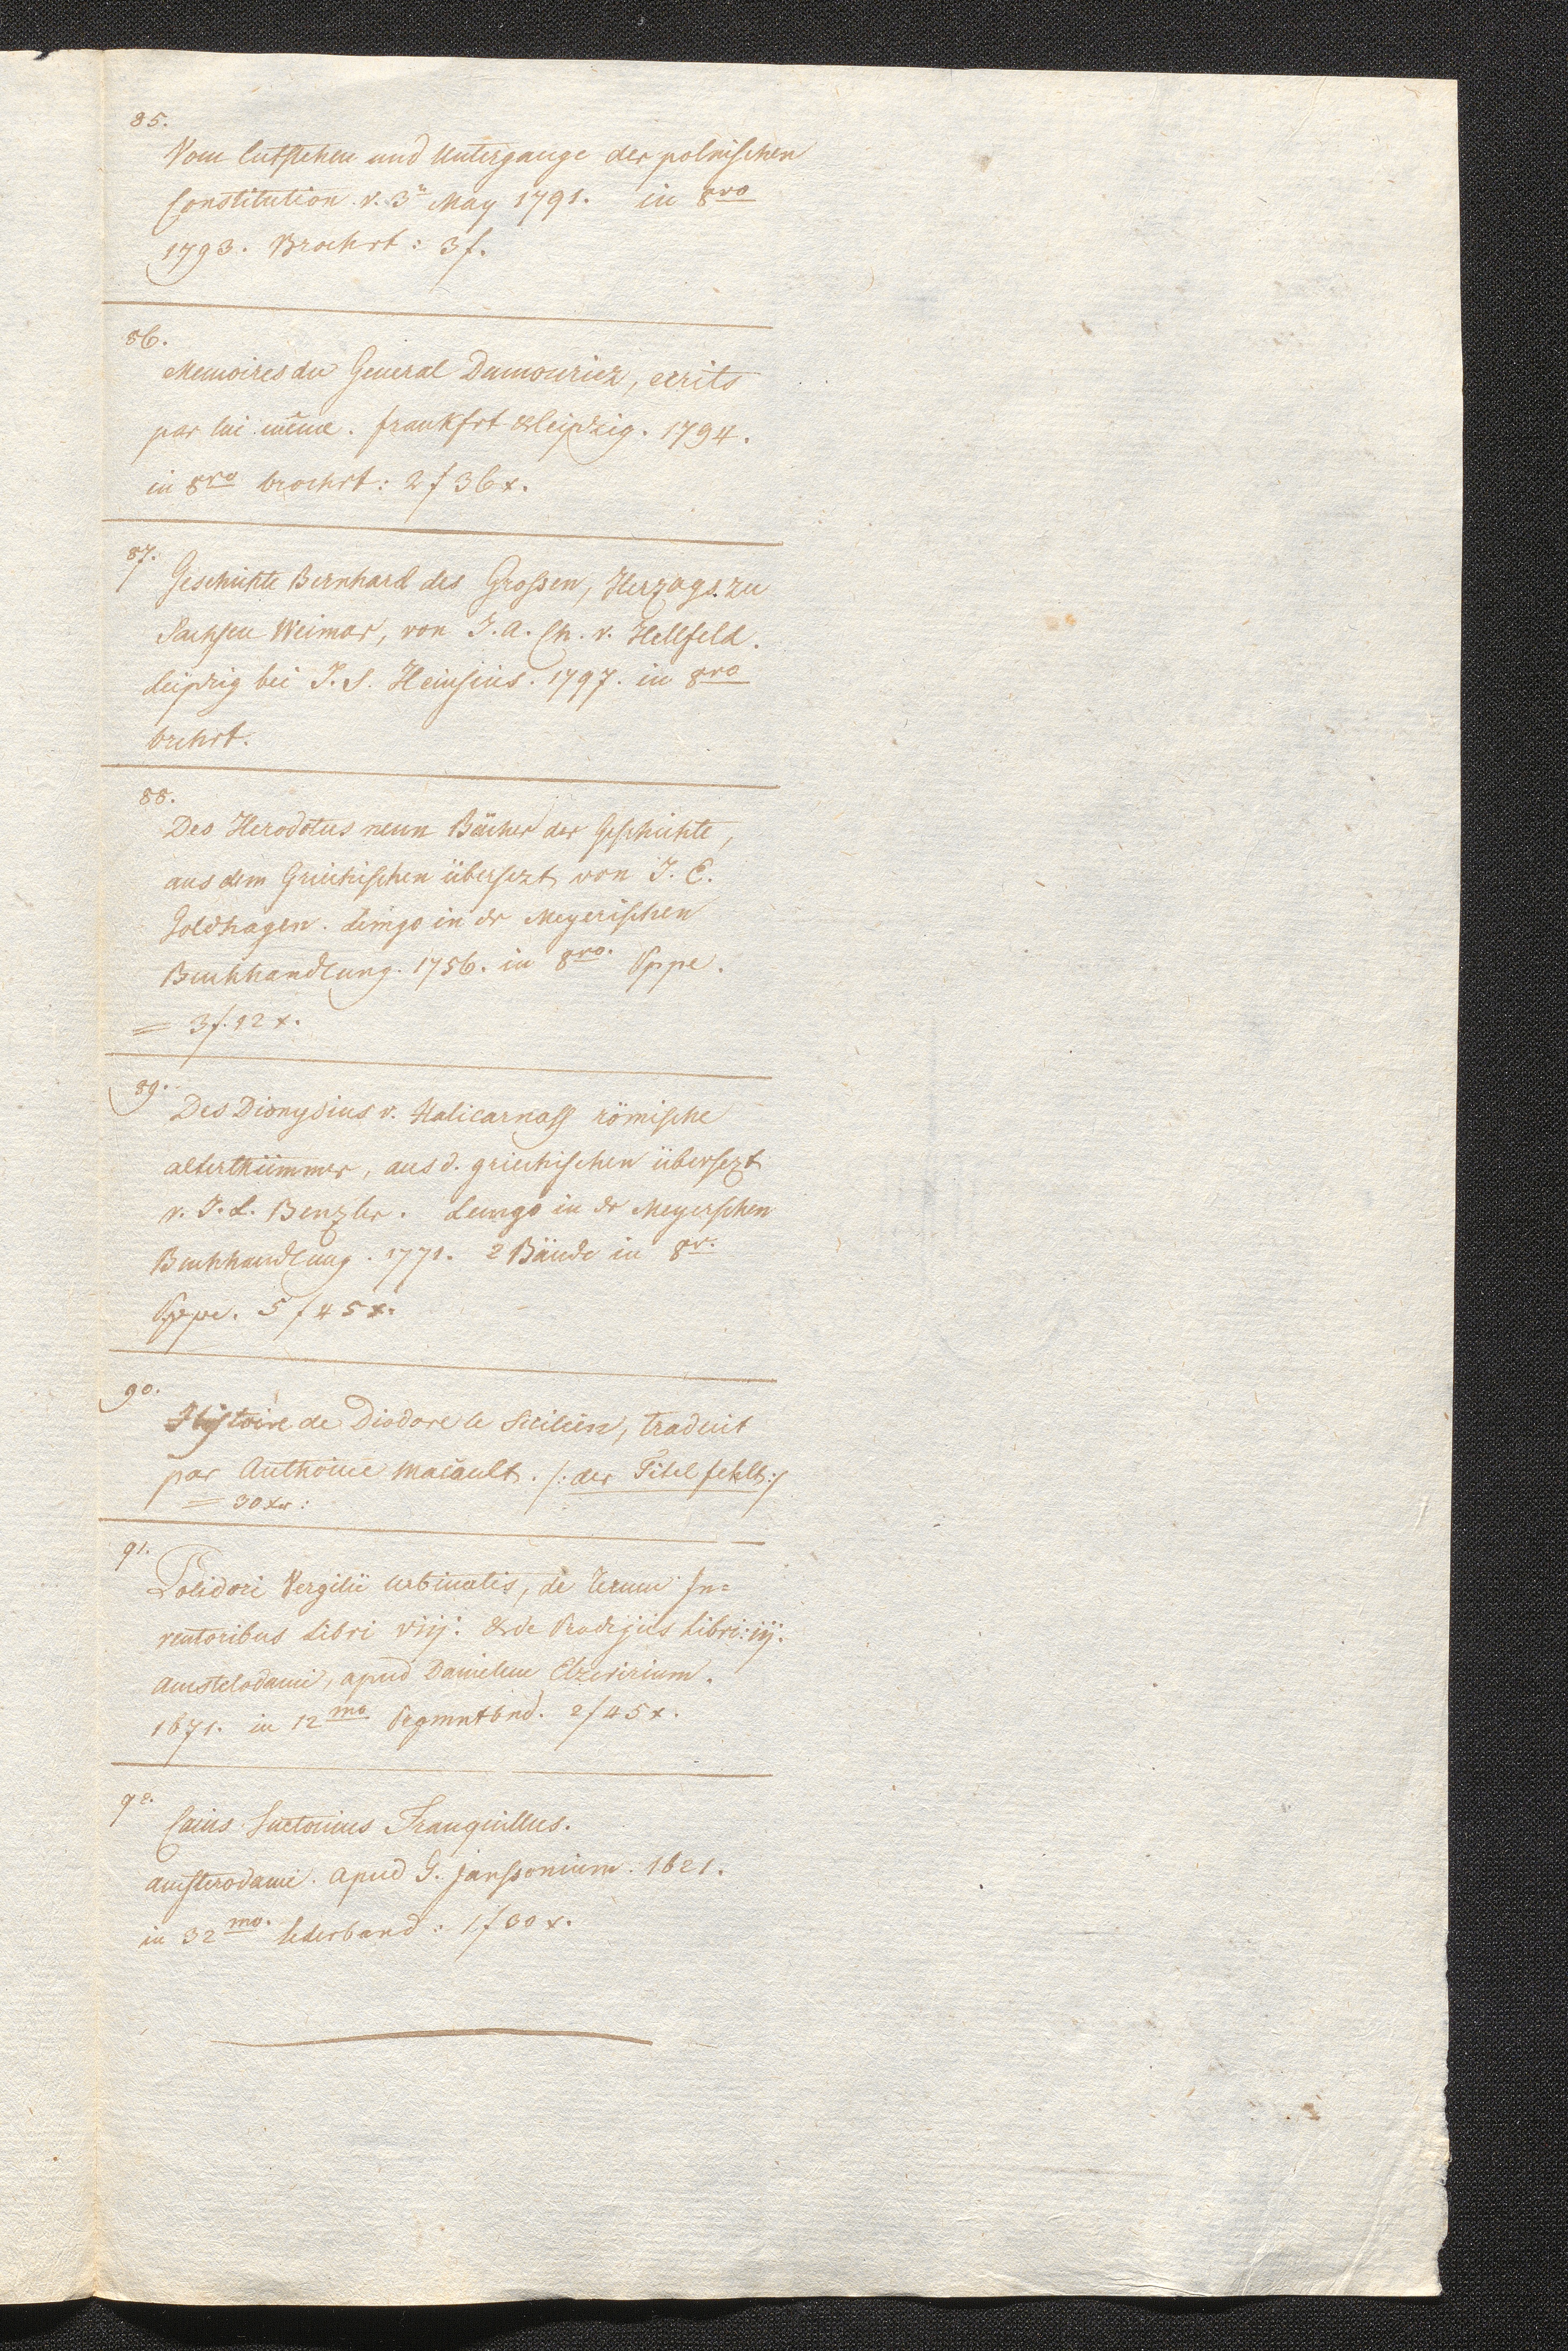 85.
Vom Entstehen und Untergange der polnischen
Constitution v. 3n May 1791. in 8vo
1793. Brochrt: 3f.
86.
Memoires du General Dumouriez, ecrits
par lui même. frankfrt & Leipzig. 1794.
in 8vo brochrt: 2f 36x.
87.
Geschichte Bernhard des Großen, Herzogs zu
Sachsen Weimar, von J. A. Ch. v. Hellfeld.
Leipzig bei J. S. Heinsius. 1797. in 8vo
brchrt.
88.
Des Herodotus neun Bücher der Geschichte,
aus dem Griechischen übersezt von J. E.
Goldhagen. Lemgo in dr Meyerischen
Buchhandlung. 1756. in 8vo. Pppe.
= 3f. 12x.
89.
Des Dionysius v. Halicarnass römische
alterthümmer, aus d. griechischen übersezt
v. J. L. Benzler. Lemgo in dr Meyerschen
Buchhandlung. 1771. 2 Bände in 8v.
Pppe. 5f 45x.
90.
Histoire de Diodore le Sicilien, traduit
par Anthoine Macault. /: der Titel fehlt :/
= 30xr:
91.
Polidori Vergilii Urbinatis, de rerum In=
ventoribus Libri viij. & de Prodigiis Libri: iij.
Amstelodami, apud Danielem Elzevirium.
1671. in 12mo Pegmntbnd. 2f 45x.
92.
Caius Suetonius Tranquillus.
amsterodami. apud G. Janssonium. 1621.
in 32mo. lederband: 1f 30x.